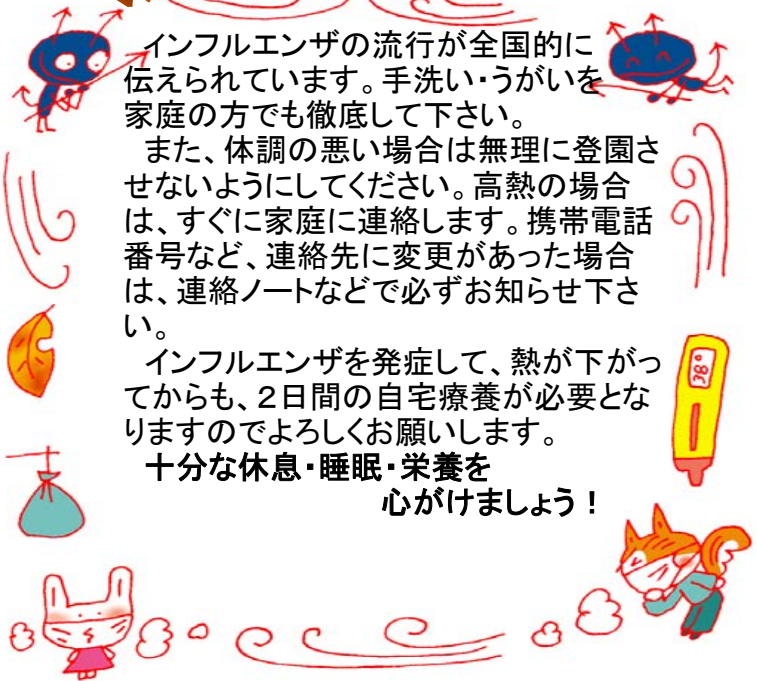 インフルエンザの流行が全国的に
伝えられています。手洗い・うがいを
家庭の方でも徹底して下さい。
また、体調の悪い場合は無理に登園さ
せないようにしてください。高熱の場合
は、すぐに家庭に連絡します。携帯電話
番号など、連絡先に変更があった場合
は、連絡ノートなどで必ずお知らせ下さ
い。
インフルエンザを発症して、熱が下がっ
てからも、２日間の自宅療養が必要とな
りますのでよろしくお願いします。
十分な休息・睡眠・栄養を
心がけましょう！
38°